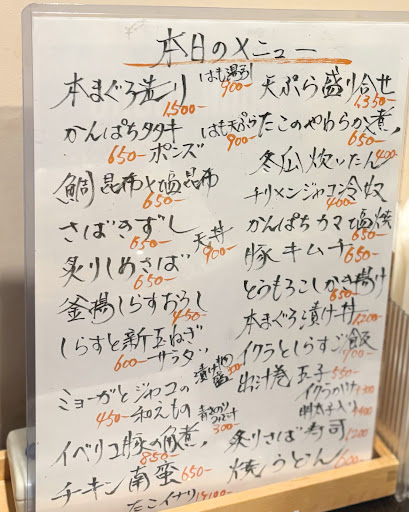 本日のメニュー
本まぐろ造り
1,500-
はも湯引
900-
かんぱちタタキ
650- ポンズ
はも天ぷら
900-
鯛昆布〆塩昆布
650-
さばきずし
650-
天丼
900-
炙りしめさば
650-
釜揚しらすおろし
450-
しらすと新玉ねぎ
600- サラダ
漬け物盛
300
ミョーガとジャコの
450- 和えもの
300-
イベリコ豚の角煮,
850-
チキン南蛮 650-
たこイナリ
天ぷら盛り合せ
1,350-
たこのやわらか煮,
650-
冬瓜炊いたん
400-
チリメンジャコ冷奴
400-
かんぱちカマ塩焼
650-
豚キムチ
650-
とうもろこしかき揚げ
650-
本まぐろ漬け丼
1200-
イクラとしらすご飯
出汁巻玉子 550-
イクラのけ +300
明太子入り +400
炙りさば寿司
1200
焼うどん 600-